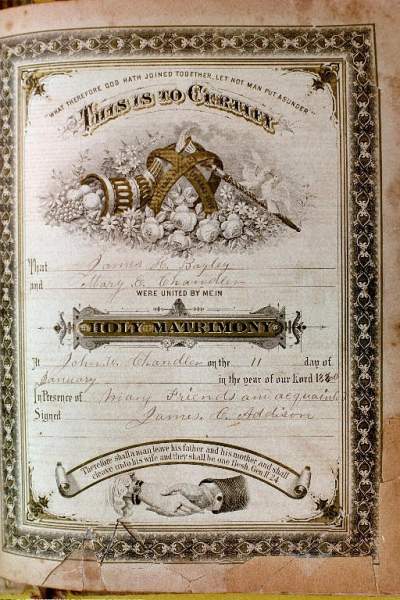 "WHAT THEREFORE GOD HATH JOINED TOGETHER, LET NOT MAN PUT ASUNDER"
THIS IS TO CERTIFY
That James H. Bayley
and Mary E. Chandler
WERE UNITED BY ME IN
HOLY MATRIMONY
At John Chandler on the 11 day of
January in the year of our Lord 188
In Presence of Many Friends
Signed James C. Addison
Therefore shall a man leave his father and his mother, and shall
cleave unto his wife and they shall be one flesh. Gen. II. 24